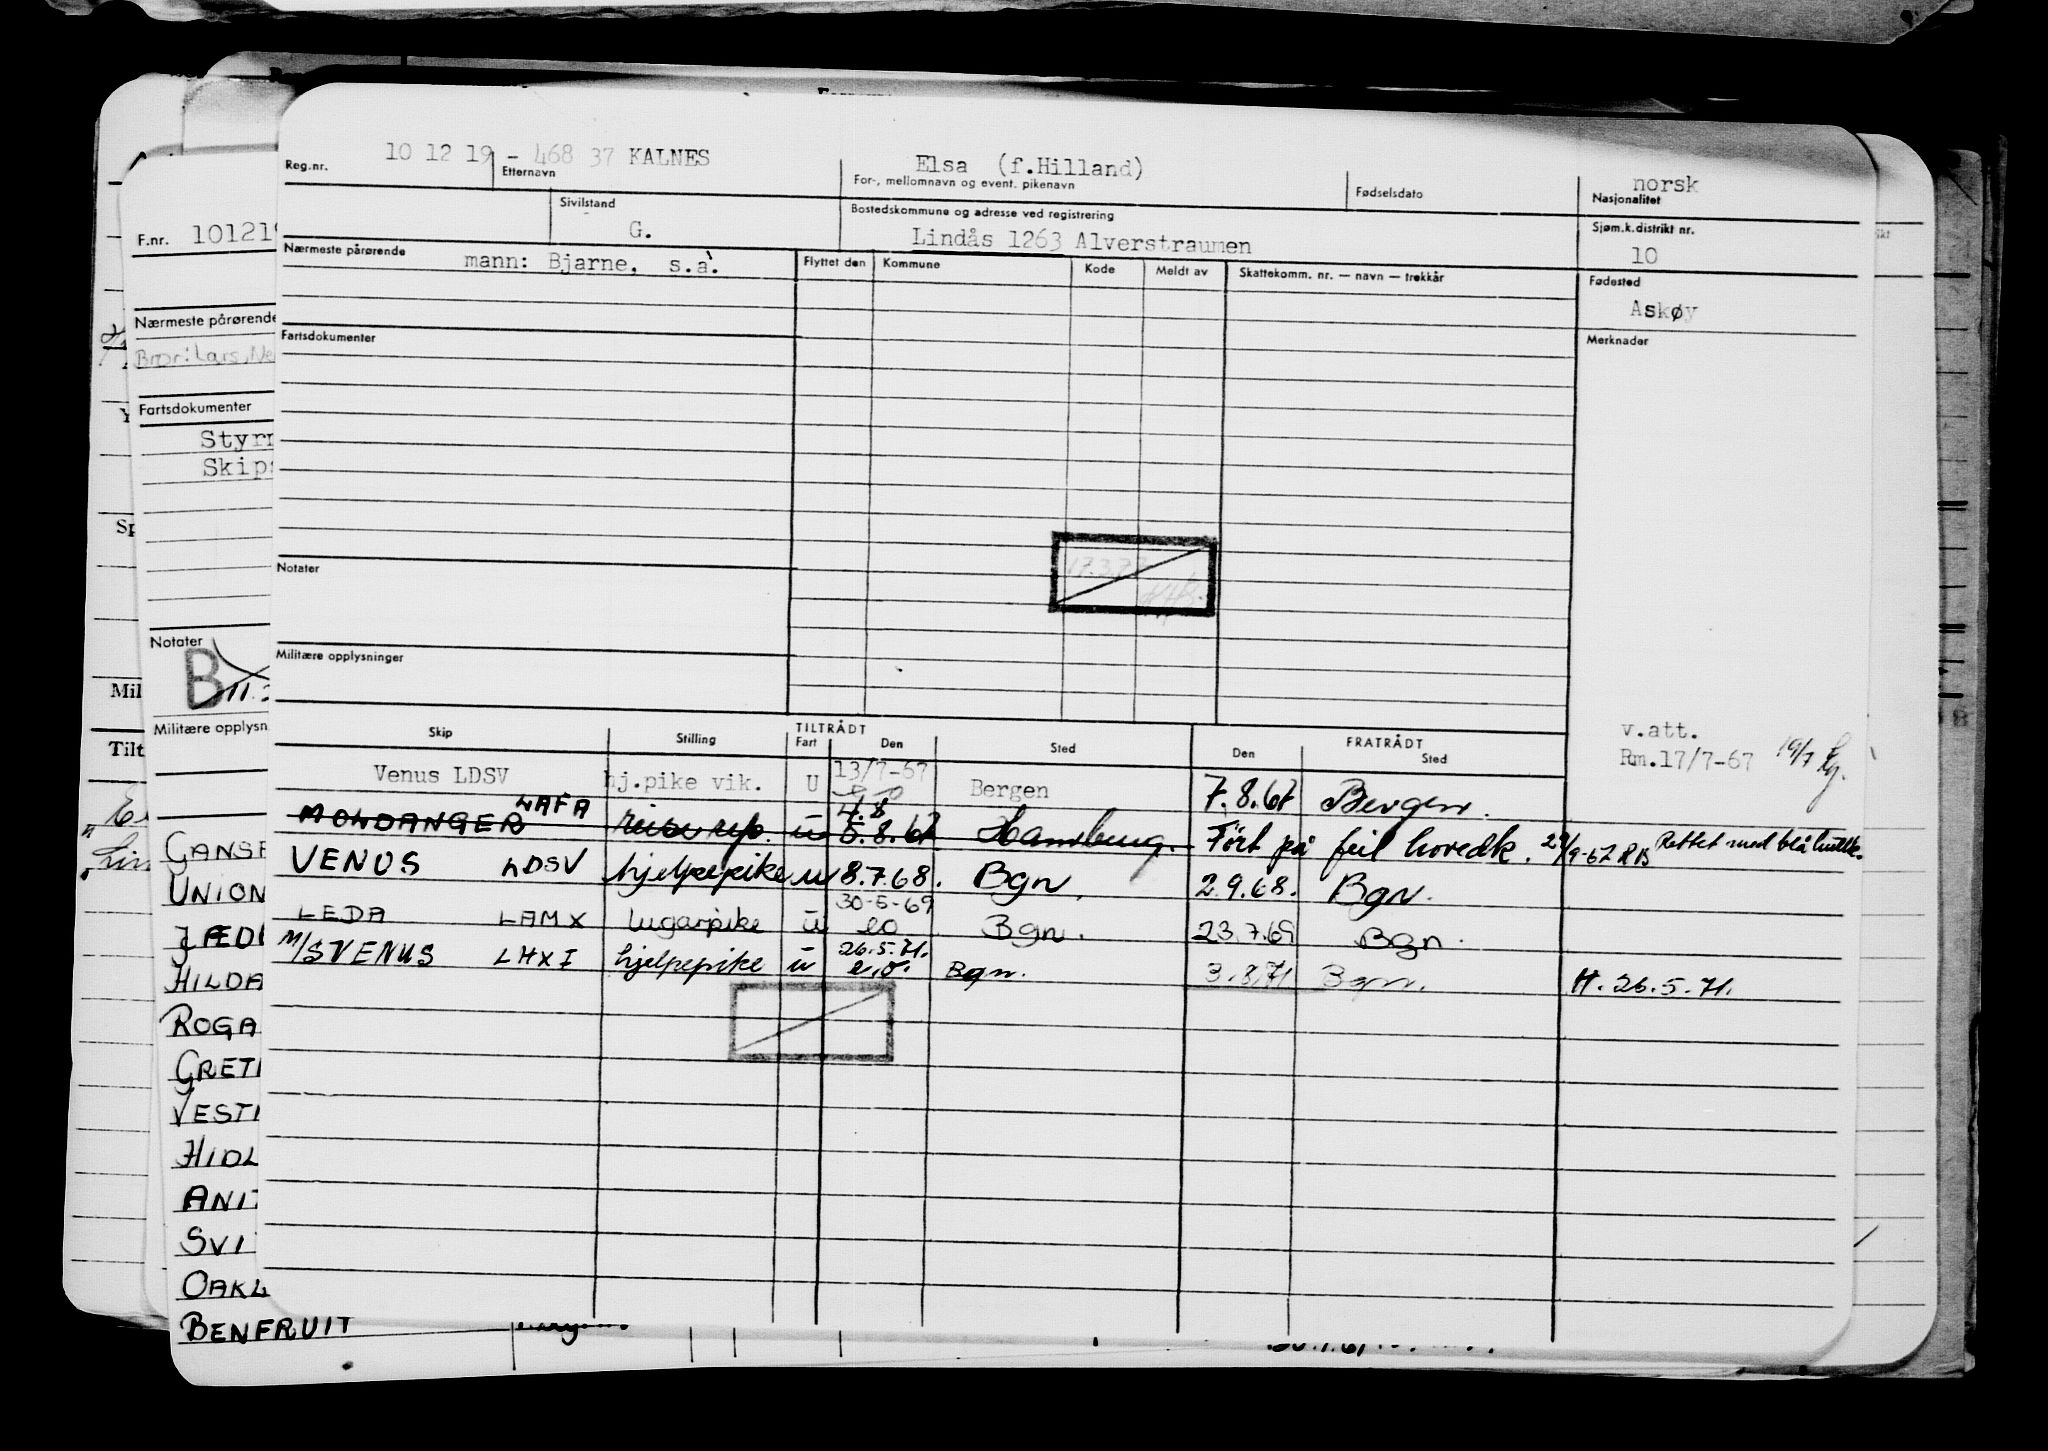 10 12 19 - 468 37 KALNES Elsa (f.Hilland) norsk
Reg.nr. Etternavn For-, mellomnavn og event. pikenavn Fødselsdato Nasjonalitet
Sivilstand Bostedskommune og adresse ved registrering Sjøm.k.distrikt nr.
G. Lindås 1263 Alverstraumen 10
Nærmeste pårørende mann: Bjarne, s.a. Flyttet den Kommune Kode Meldt av Skattekomm. nr. — navn — trekkår Fødested
Askøy
Fartsdokumenter Merknader
Notater
Militære opplysninger
v.att.
Rm.17/7-67 19/7
Skip Stilling TILTRÅDT Fart Den Sted FRATRÅDT Den Sted
Venus LDSV hj.pike vik. U 13/7-67 Bergen 7.8.67 Bergen.
MOLDANGER LAFA reise rep. u 4.8 5.8.67 Hamburg. Ført på feil hovedk. 29/9-67 RB Rettet med blå
VENUS LDSV hjelpepike u 8.7.68. Bgn. 2.9.68. Bgn.
LEDA LAMX lugarpike u 30-5-69 eo Bgn. 23.7.69 Bgn.
M/S VENUS LHXI hjelpepike u 26.5.71. e.o. Bgn. 3.8.71 Bgn. H. 26.5.71.
F.nr. 10121
Nærmeste pårørende
Bror: Lars, Ne
Fartsdokumenter
Styr
Skip
Notater
B 11.
Militære opplysn
Sp
Mil
Tilt
GANS
UNION
JÆD
HILDA
ROGA
GRET
VEST
HIDL
ANI
SVI
OAKL
BENFRUIT